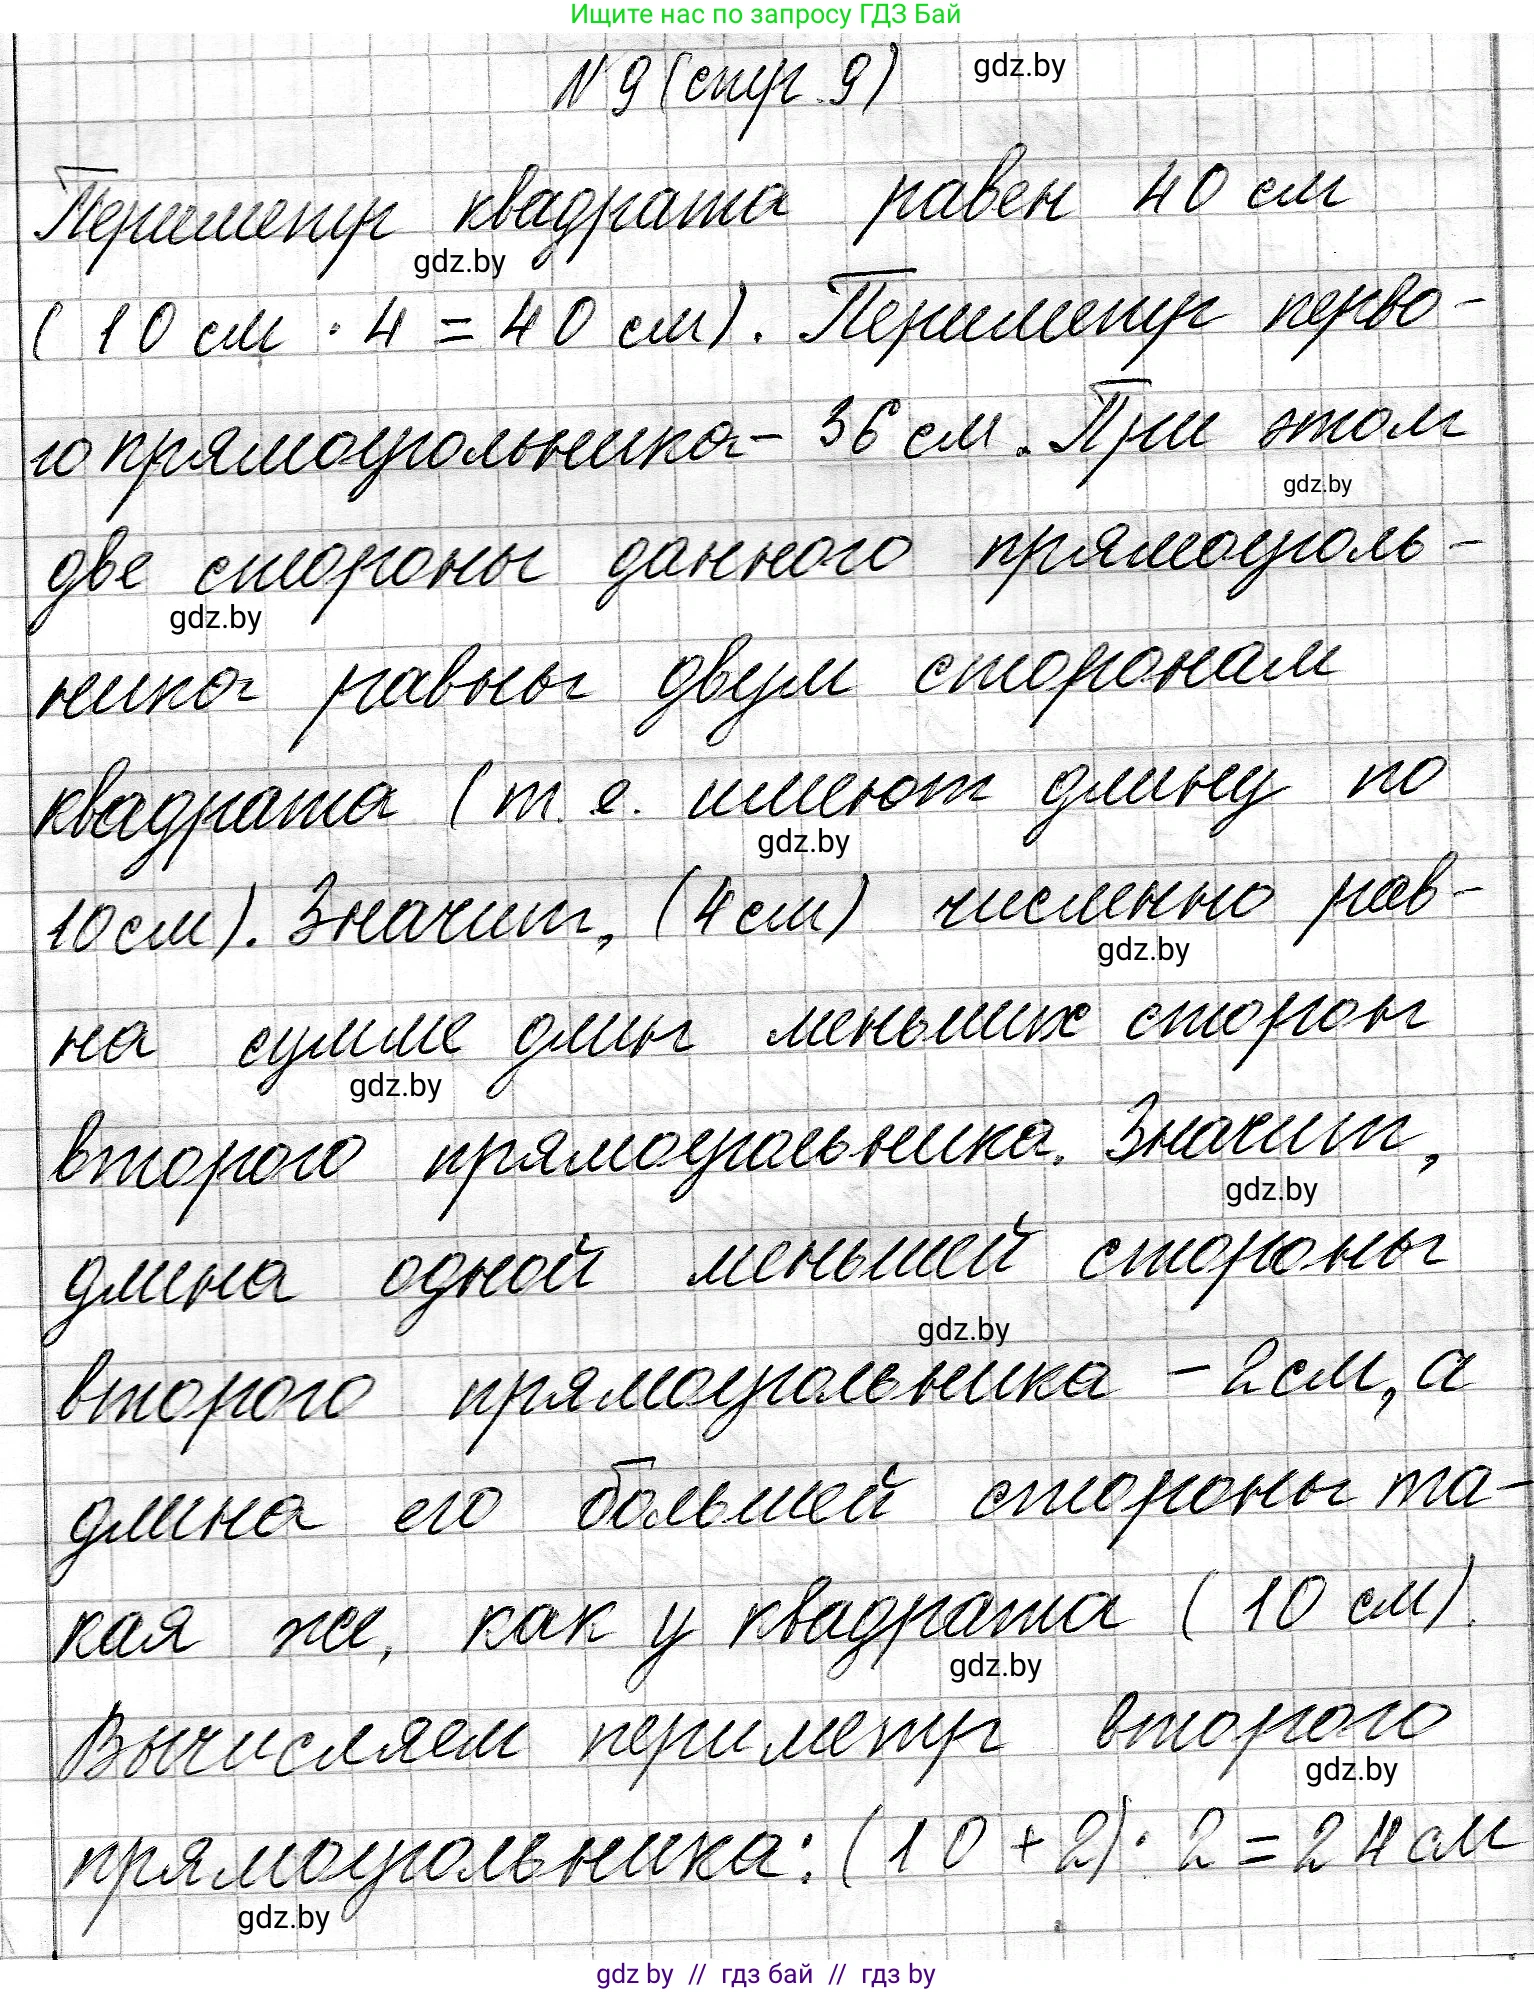 Ищите нас по запросу ГДЗ Бай
№9 (стр. 9) gdz.by
Периметр квадрата равен 40 см
gdz.by
(10 см · 4 = 40 см). Периметр перво-
го прямоугольника - 36 см. При этом
gdz.by
две стороны данного прямоуголь-
gdz.by
ника равны двум сторонам
квадрата (т. е. имеют длину по
gdz.by
10 см). Значит, (4 см) численно рав-
gdz.by
на сумме длин меньших сторон
gdz.by
второго прямоугольника. Значит,
gdz.by
длина одной меньшей стороны
gdz.by
второго прямоугольника - 2 см, а
длина его большей стороны та-
кая же, как у квадрата (10 см).
gdz.by
Вычисляем периметр второго
gdz.by
прямоугольника: (10 + 2) · 2 = 24 см
gdz.by
gdz by // гдз бай // гдз by